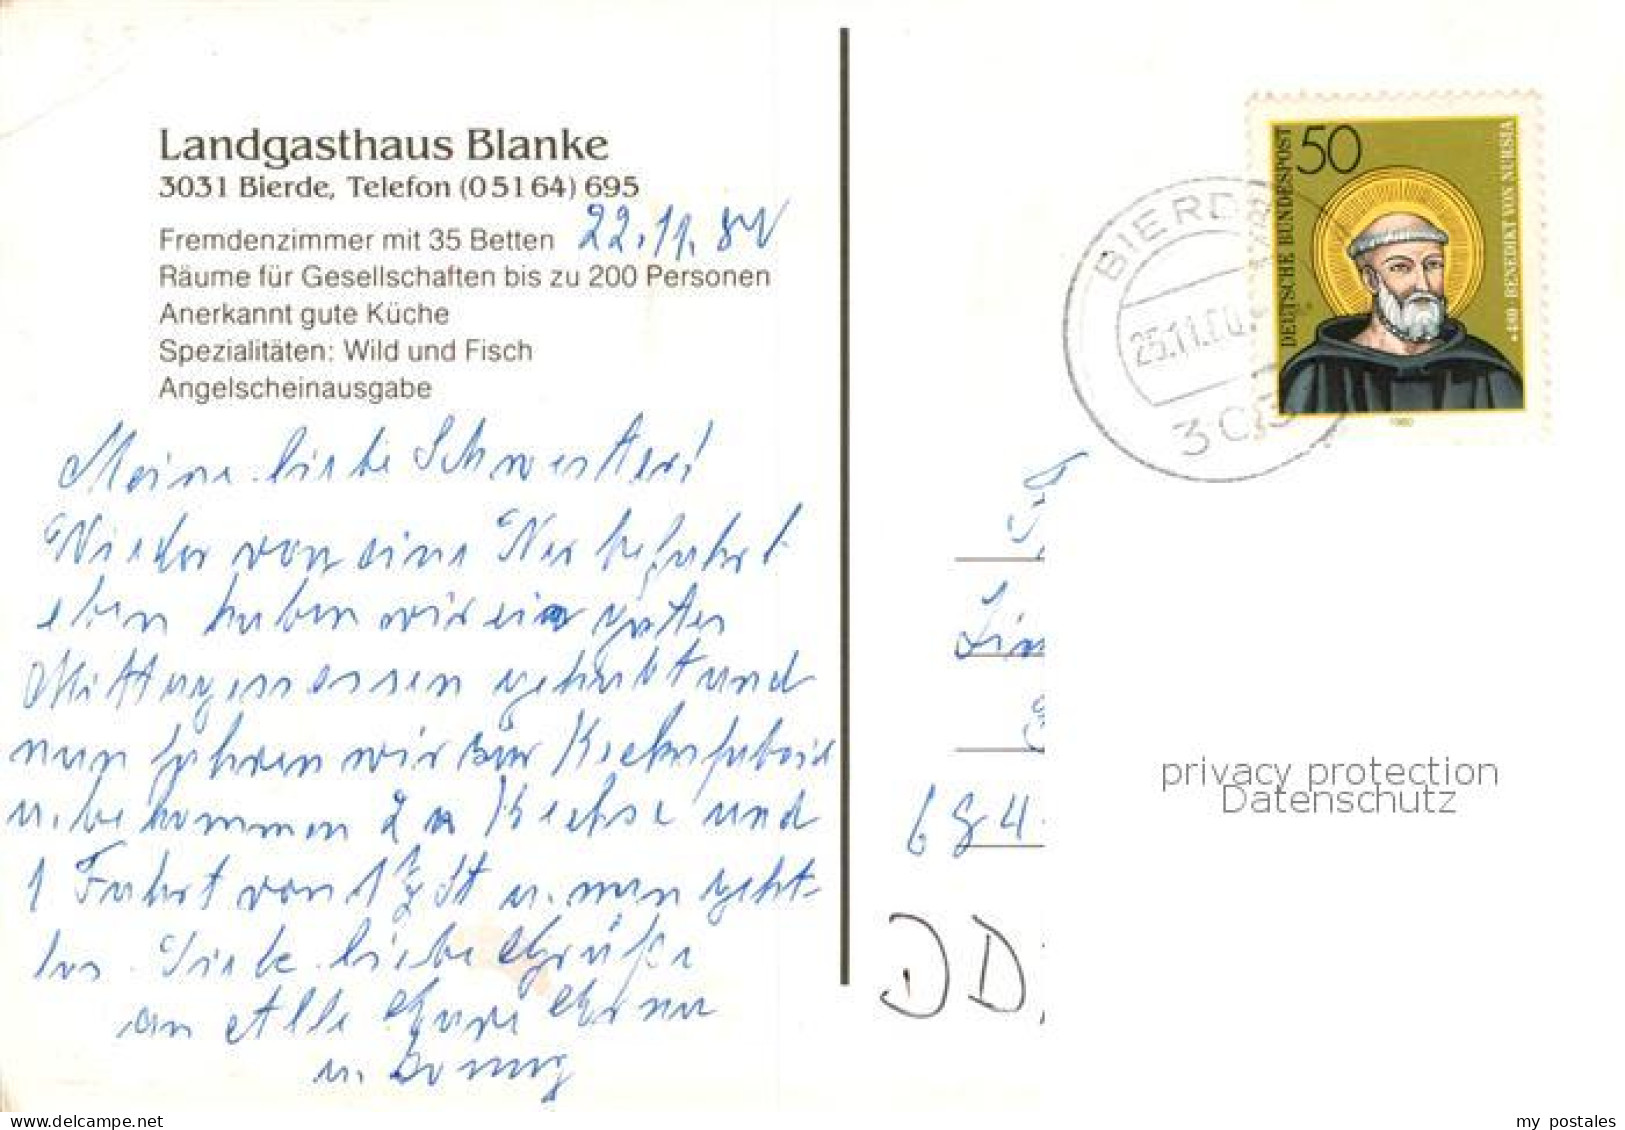 Landgasthaus Blanke
3031 Bierde, Telefon (0 51 64) 695
Fremdenzimmer mit 35 Betten 22.11.80
Räume für Gesellschaften bis zu 200 Personen
Anerkannt gute Küche
Spezialitäten: Wild und Fisch
Angelscheinausgabe
Meine liebe Schwester!
Wieder von eine Werbefahrt
eben haben wir ein gutes
Mittagessen gehabt und
nun fahren wir zur Keksfabrik
u. bekommen 2 Kekse und
1 Fahrt von 1 1/2 St u. nun geht
los. Liebe Grüße
an Alle Eure Erna
u.
BIERDE
25.11.80
303
50
DEUTSCHE BUNDESPOST
* 480 BENEDIKT VON NURSIA
1980
684
DD
privacy protection
Datenschutz
www.delcampe.net
my_postales